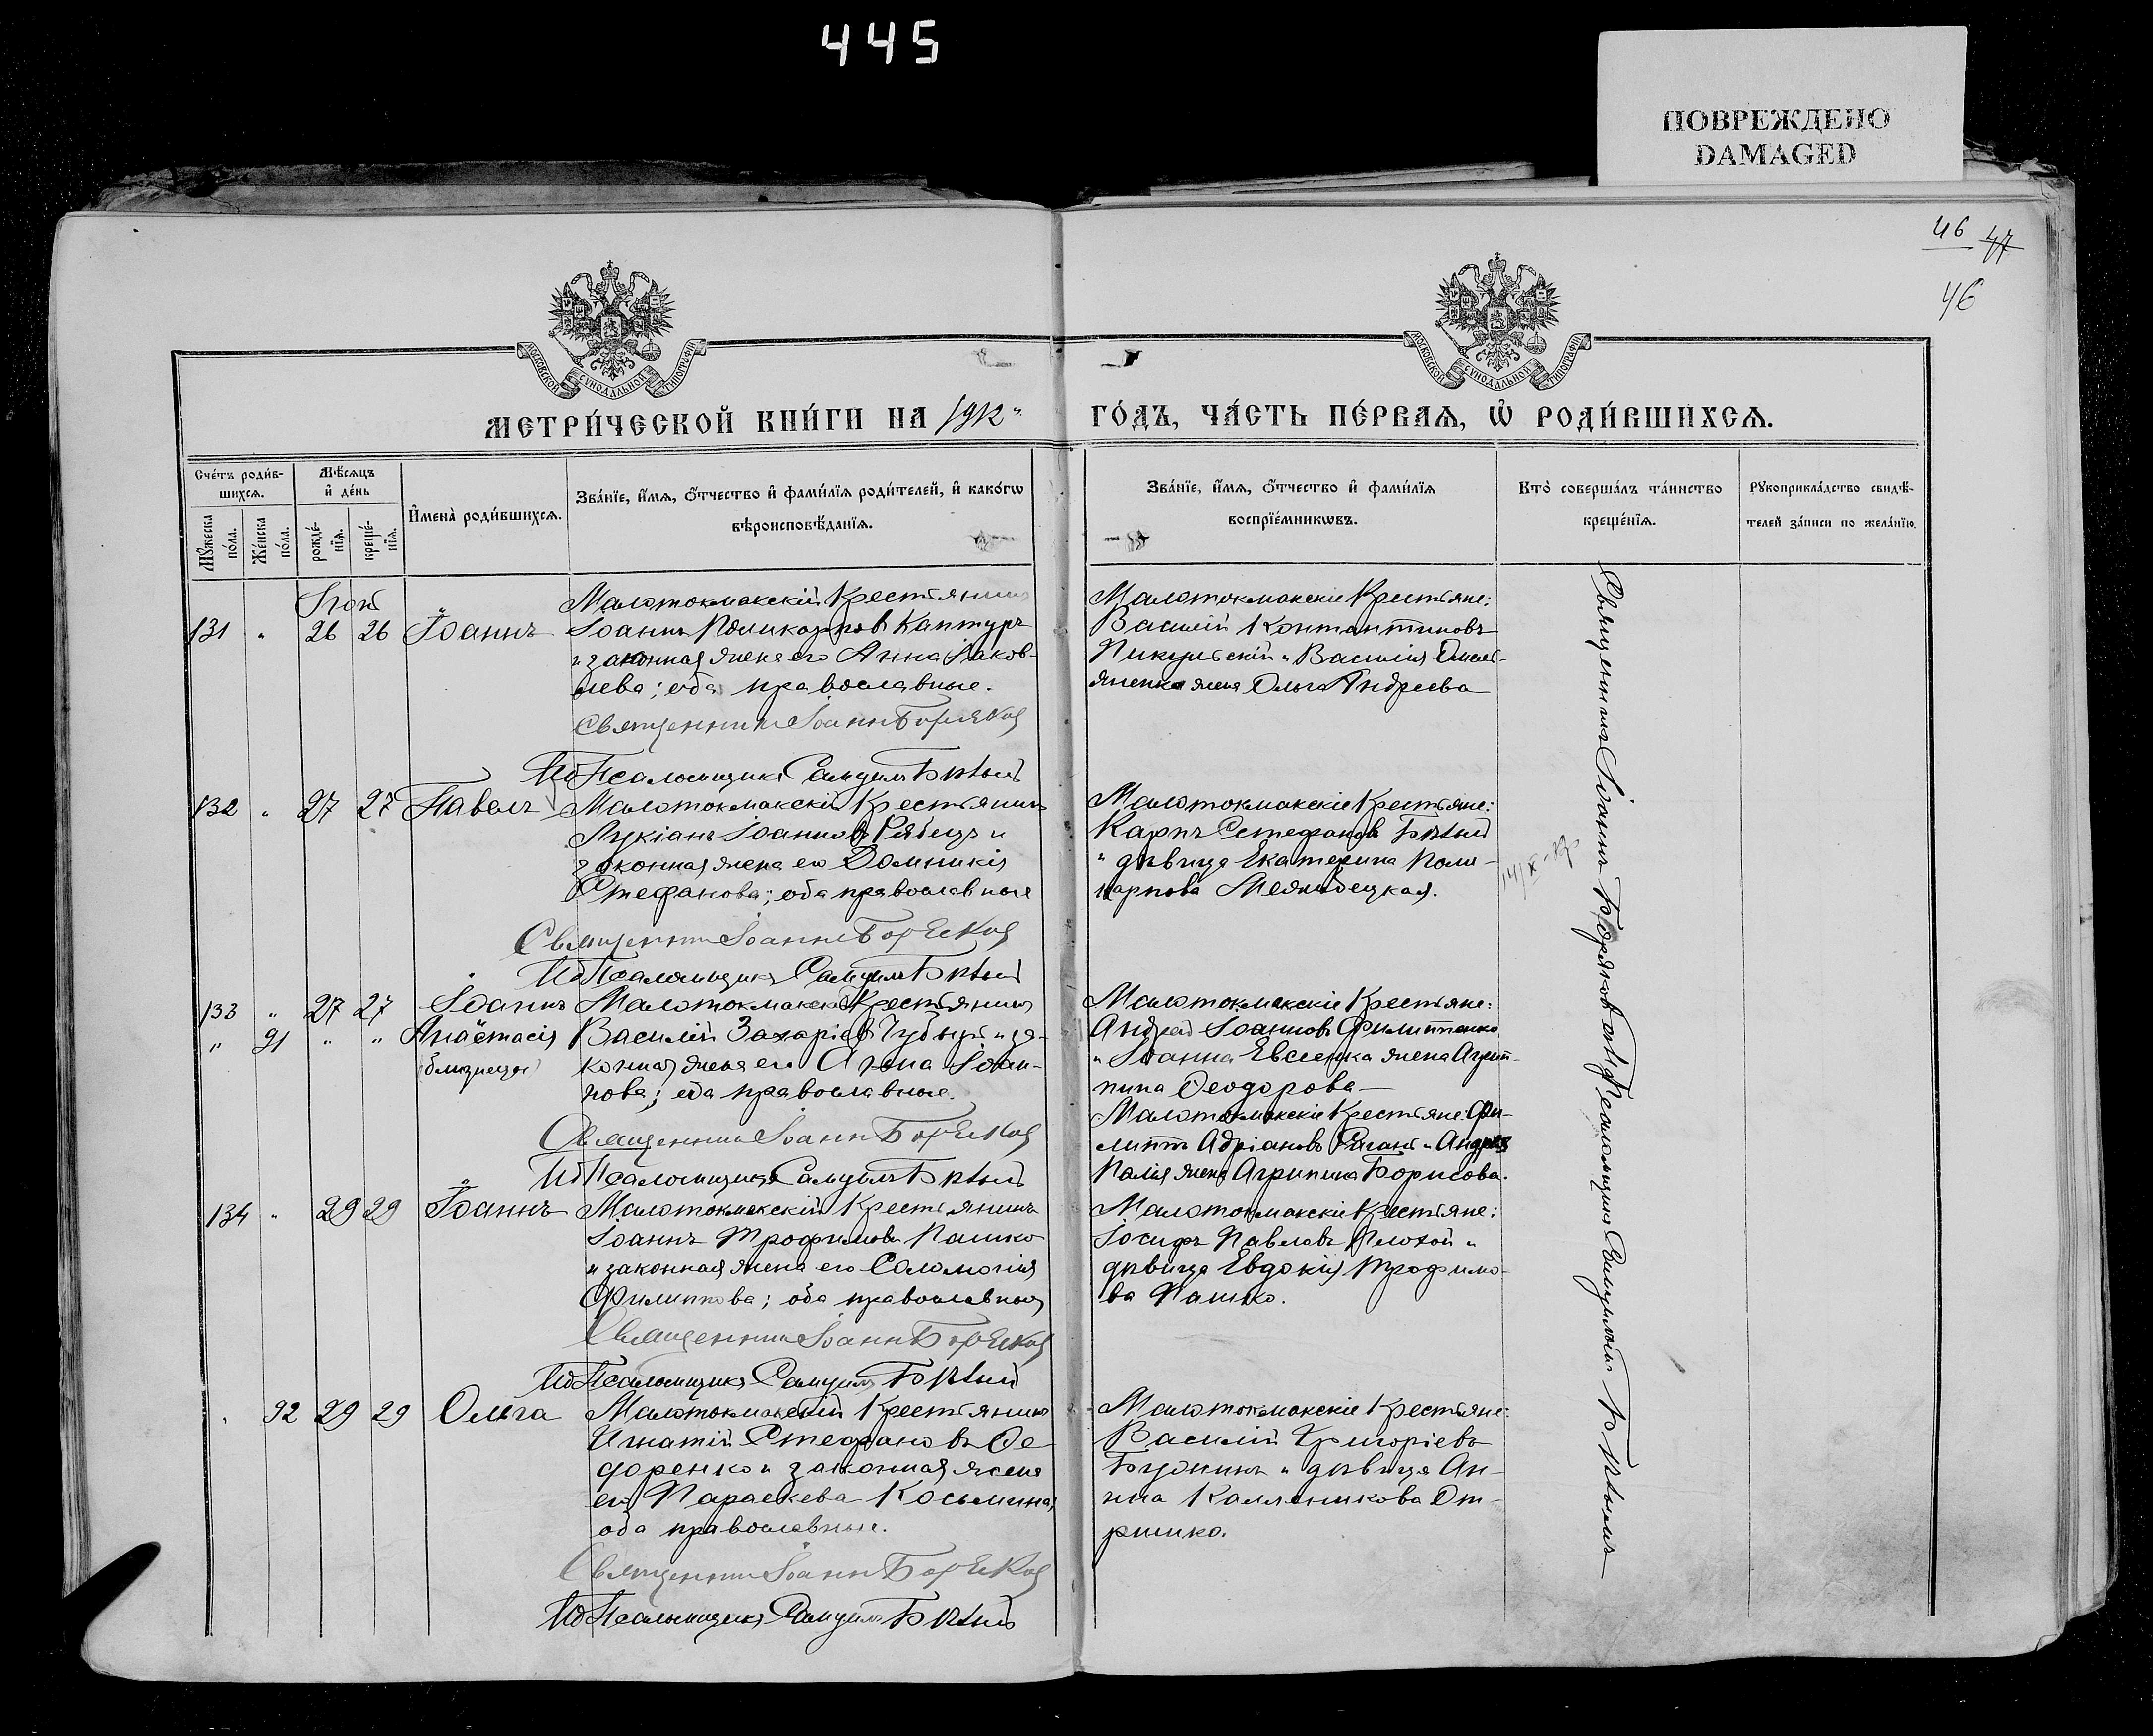 445
ПОВРЕЖДЕНО
DAMAGED
46 47
46
МОСКОВСКОЙ СѴНОДАЛЬНОЙ ТИПОГРАФІИ
МОСКОВСКОЙ СѴНОДАЛЬНОЙ ТИПОГРАФІИ
МЕТРИ́ЧЕСКОЙ КНИ́ГИ НА 1912
ГО́ДЪ, ЧА́СТЬ ПЕ́РВАѦ, Ѡ҆ РОДИ́ВШИХСѦ.
Сче́тъ роди́в-
шихсѧ.
Мѹ́жеска по́ла.
Же́нска по́ла.
Мѣ́сѧцъ
и҆ де́нь
рожде́-
нїѧ.
креще́-
нїѧ.
И҆мена̀ роди́вшихсѧ.
Зва́нїе, и҆́мѧ, ѻ҆́тчество и҆ фами́лїѧ роди́телей, и҆ како́гѡ
вѣроисповѣ́данїѧ.
Зва́нїе, и҆́мѧ, ѻ҆́тчество и҆ фами́лїѧ
воспрїе́мникѡвъ.
Кто̀ соверша́лъ та́инство
креще́нїѧ.
Рѹкоприкла́дство свидѣ́-
телей за́писи по жела́нїю.
131 " 26 26 Іоаннъ
Малотокмакскій Крестьянинъ
Іоаннъ Поликарповъ Каптуръ
и законная жена его Анна Іаков-
лева; оба православные.
Священникъ Іоаннъ
ИдПсаломщика Самуилъ Бѣлый
Малотокмакскіе Крестьяне:
Василій Константиновъ
Пикульскій и Василія
жена Ольга Андреева
132 " 27 27 Павелъ
Малотокмакскій Крестьянинъ
Лукіанъ Іоанновъ Рябецъ и
законная жена его Домникія
Стефанова; оба православные
Священникъ Іоаннъ
ИдПсаломщика Самуилъ Бѣлый
Малотокмакскіе Крестьяне:
Карпъ Стефановъ Бѣлый
и дѣвица Екатерина Поли-
карпова
133 " 27 27 Іоаннъ
" 91 " " Анастасія
(близнецы)
Малотокмакскій Крестьянинъ
Василій Захаріевъ и за-
конная жена его Анна Іоан-
нова; оба православные.
Священникъ Іоаннъ
ИдПсаломщика Самуилъ Бѣлый
Малотокмакскіе Крестьяне:
Андрей Іоанновъ Филиппенко
и Іоанна Евсенка жена Агрип-
пина Ѳеодорова
Малотокмакскіе Крестьяне: Фи-
липпъ Адріановъ и Андрея
Палія жена Агрипина Борисова.
134 " 29 29 Іоаннъ
Малотокмакскій Крестьянинъ
Іоаннъ Трофимовъ Пашко
и законная жена его Соломонія
Филиппова; оба православные
Священникъ Іоаннъ
ИдПсаломщика Самуилъ Бѣлый
Малотокмакскіе Крестьяне:
Іосифъ Павловъ Плохой и
дѣвица Евдокія Трофимо-
ва Пашко.
" 92 29 29 Ольга
Малотокмакскій Крестьянинъ
Игнатій Стефановъ Ѳе-
доренко и законная жена
его Параскева Косьмина,
оба православные.
Священникъ Іоаннъ
ИдПсаломщика Самуилъ Бѣлый
Малотокмакскіе Крестьяне:
Василій Григоріевъ
и дѣвица Ан-
на
Священникъ Іоаннъ Самуиломъ Бѣлымъ